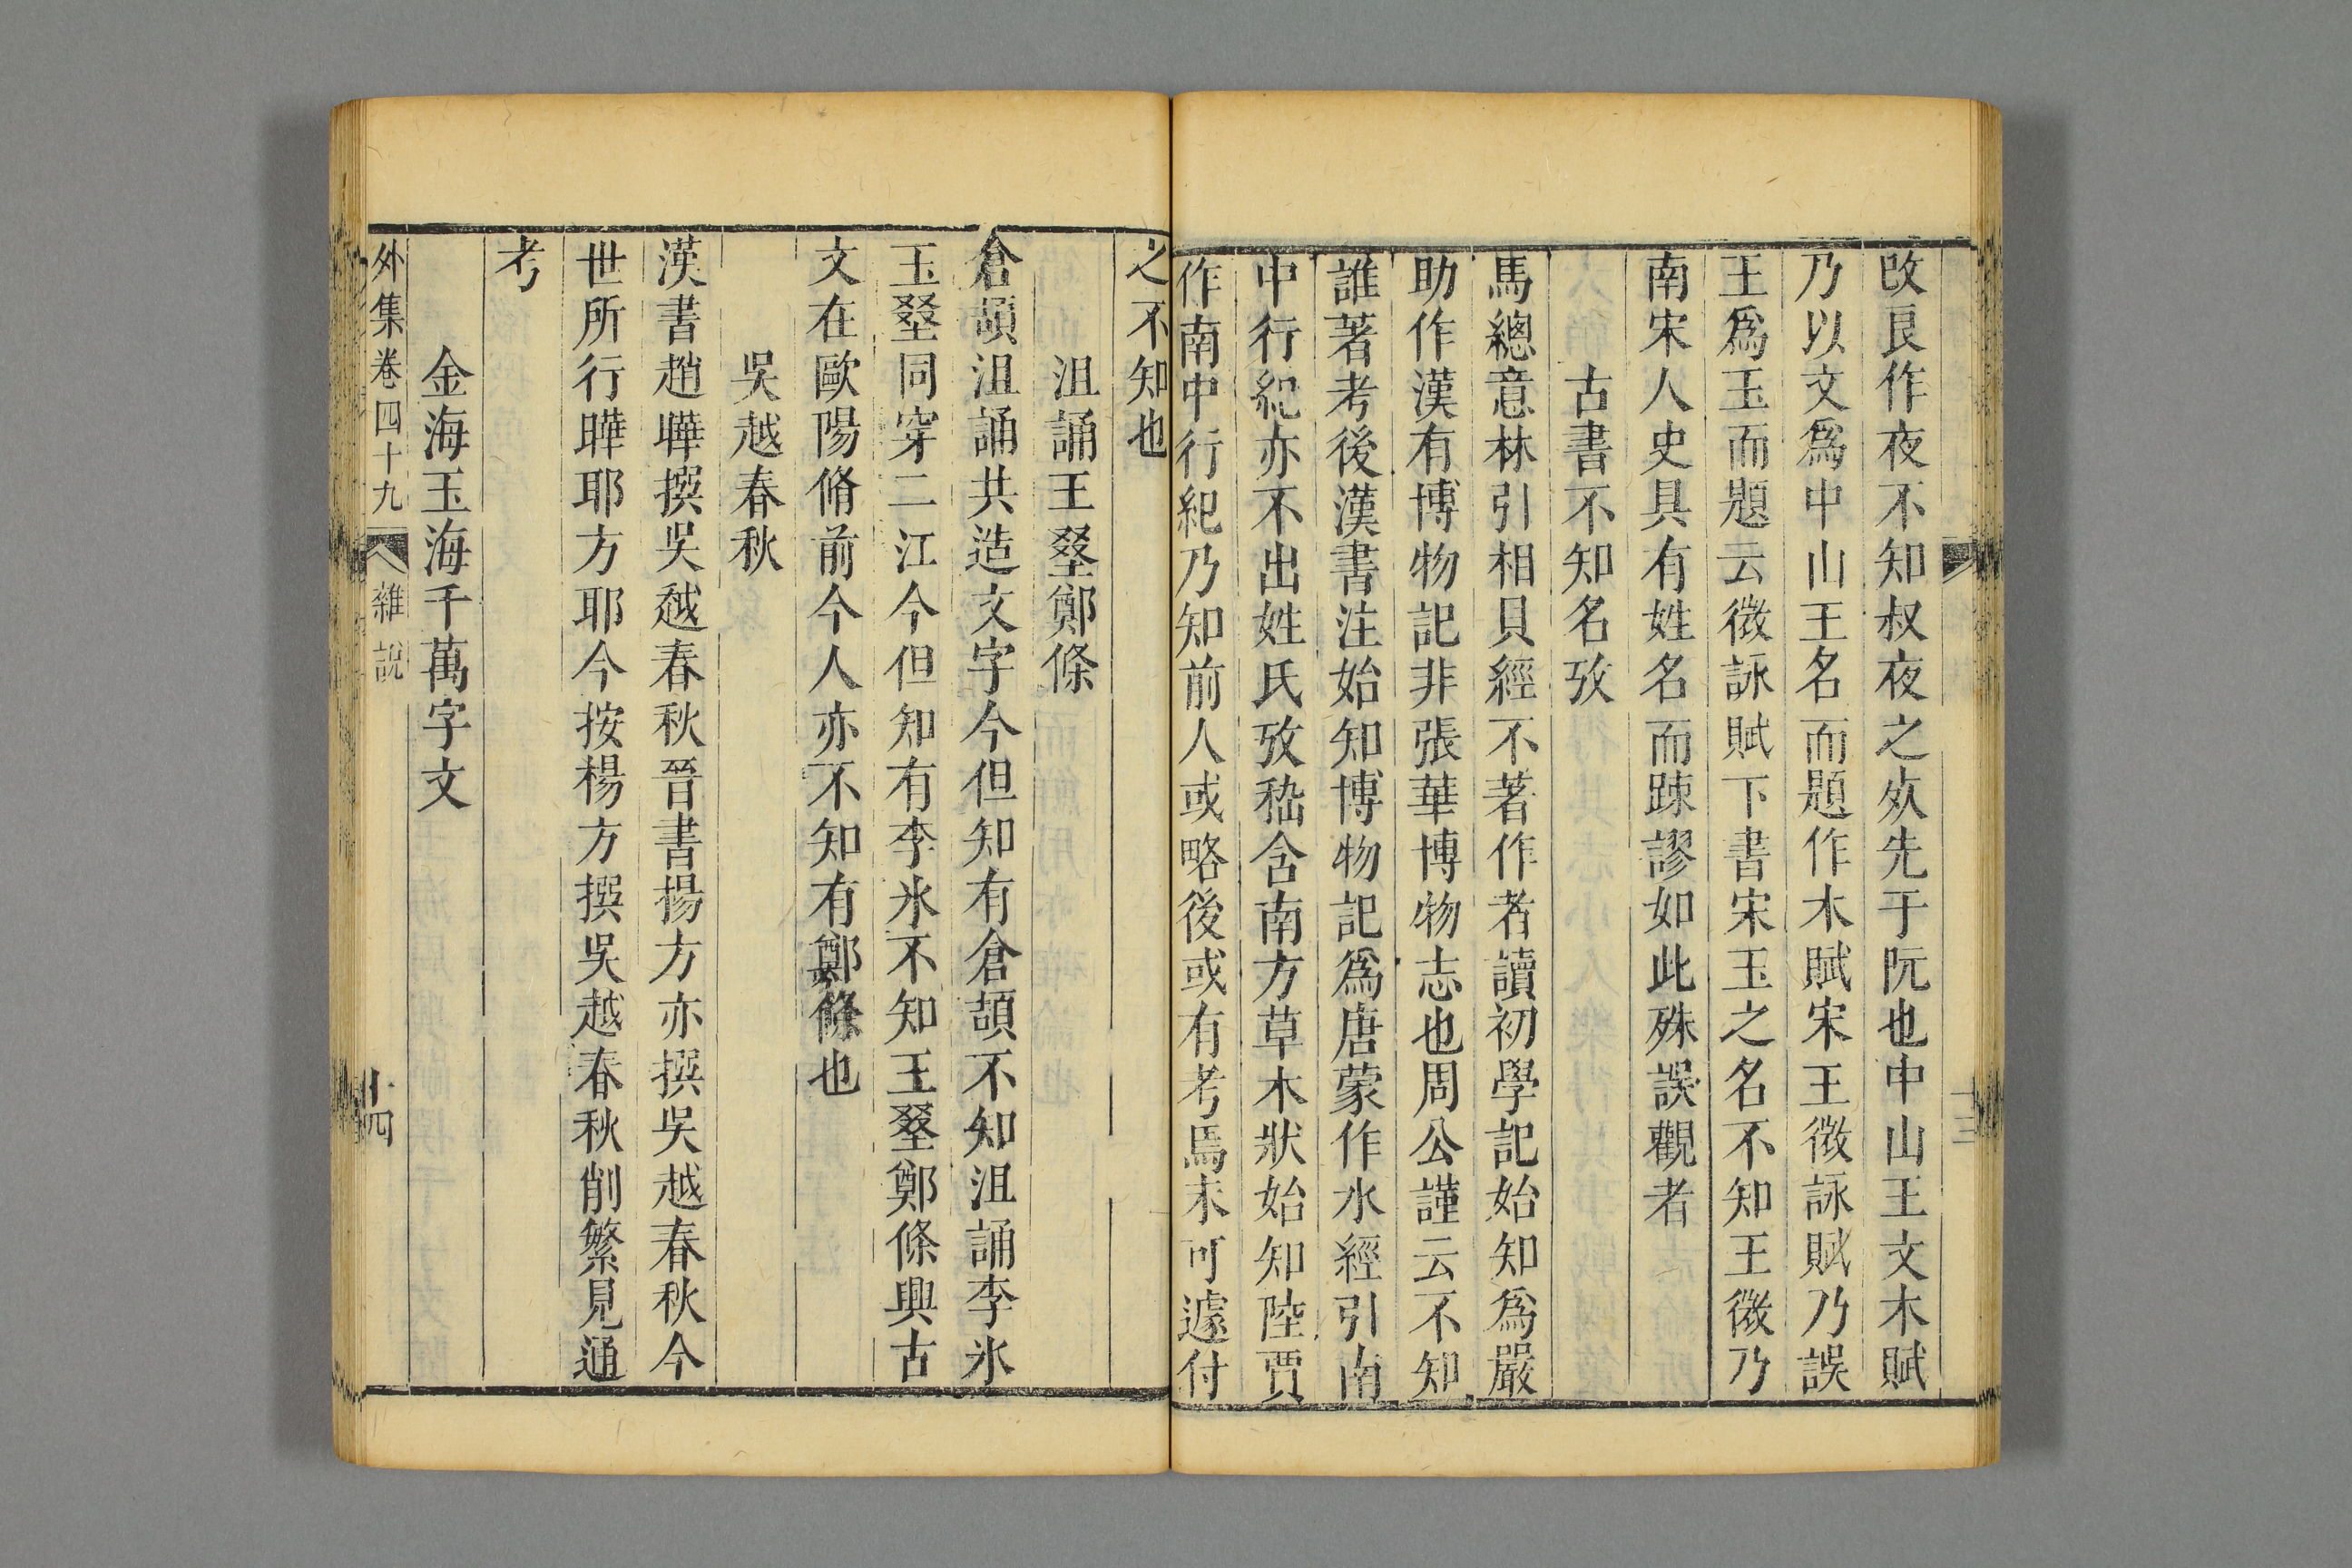 改艮作夜不知叔夜之烖先于阮也中山王文木賦
乃以文爲中山王名而題作木賦宋王微詠賦乃誤
王爲玉而題云微詠賦下書宋玉之名不知王微乃
南宋人史具有姓名而踈謬如此殊誤觀者
古書不知名攷
馬總意林引相貝經不著作者讀初學記始知爲嚴
助作漢有博物記非張華博物志也周公謹云不知
誰著考後漢書注始知博物記爲唐蒙作水經引南
中行紀亦不出姓氏攷嵇含南方草木狀始知陸賈
作南中行紀乃知前人或略後或有考焉未可遽付
之不知也
沮誦王㙓鄭條
倉頡沮誦共造文字今但知有倉頡不知沮誦李氷
玉㙓同穿二江今但知有李氷不知王㙓鄭條興古
文在歐陽脩前今人亦不知有鄭條也
吳越春秋
漢書趙曄撰吳越春秋晉書揚方亦撰吳越春秋今
世所行曄耶方耶今按楊方撰吳越春秋削繁見通
考
金海玉海千萬字文
外集卷四十九 雜說 十四